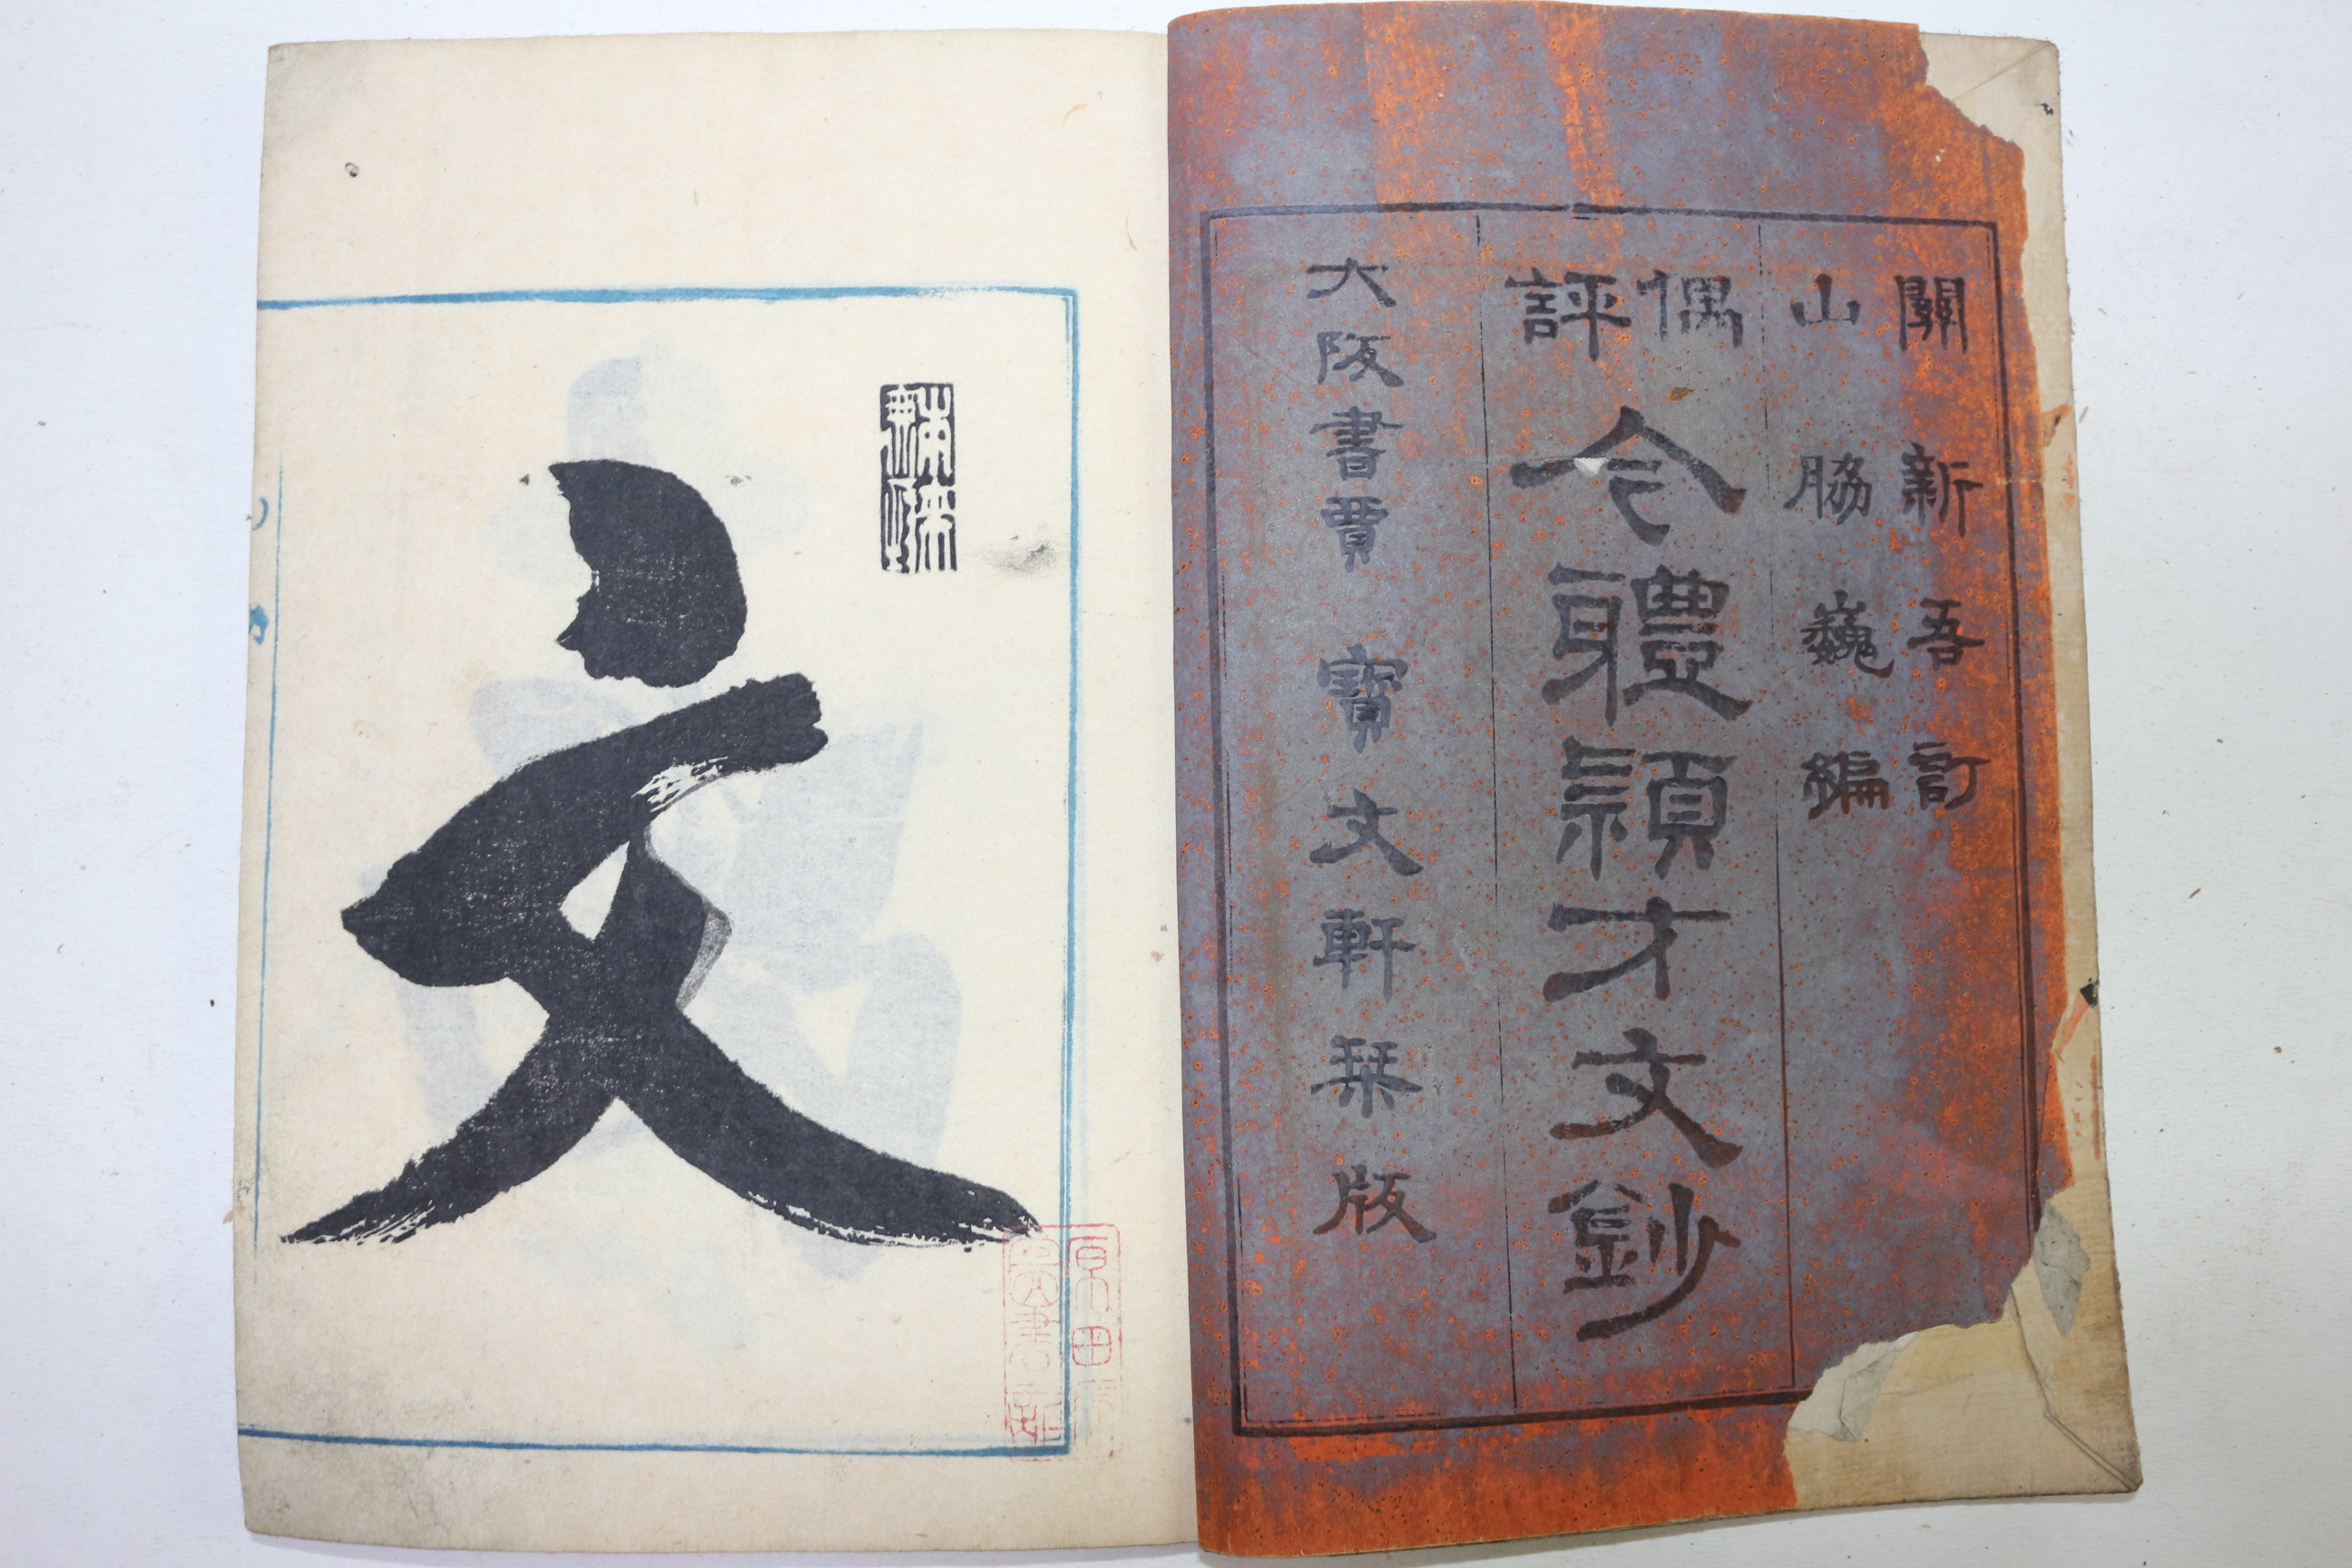 關新吾訂
山脇巍編
偶評
今體穎才文鈔
大阪書賈 寶文軒栞版
文